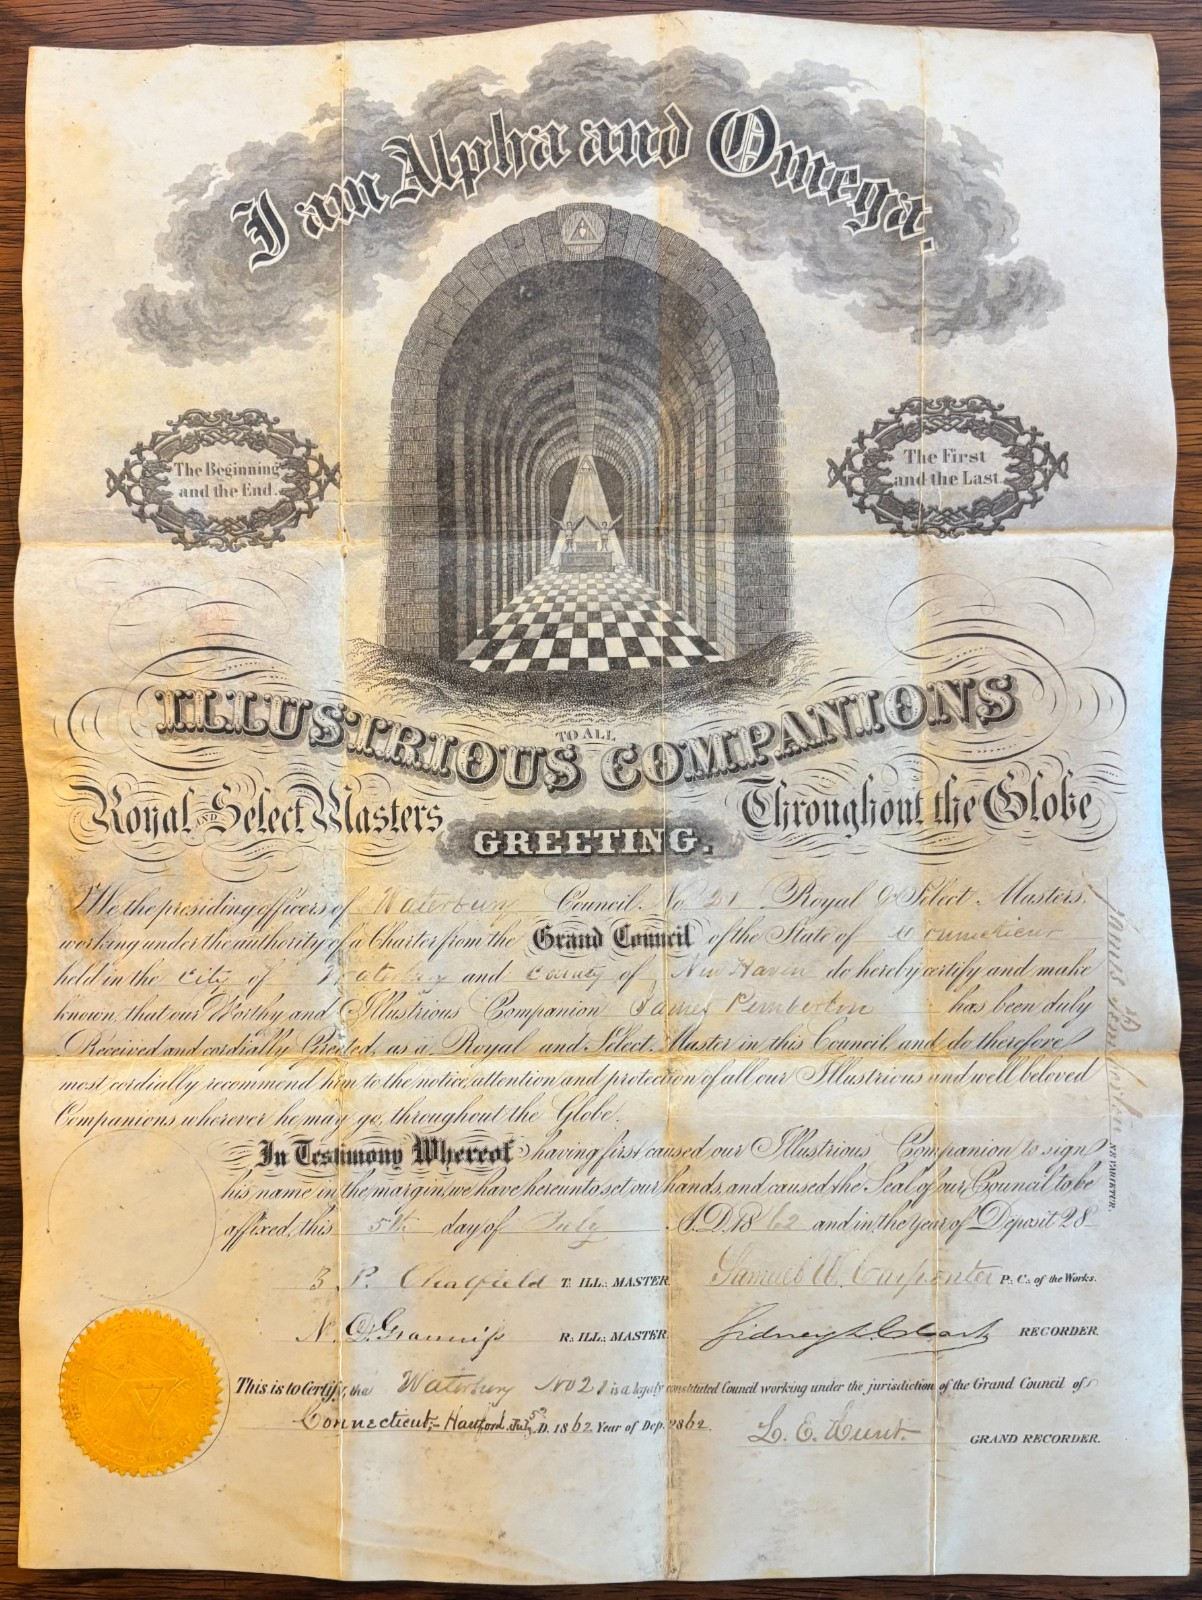 I am Alpha and Omega.
The Beginning
and the End.
The First
and the Last
TO ALL
ILLUSTRIOUS COMPANIONS
Royal AND Select Masters
Throughout the Globe
GREETING.
We the presiding officers of Waterbury Council No. 21 Royal & Select Masters,
working under the authority of a Charter from the Grand Council of the State of Connecticut
held in the City of Waterbury and County of New Haven do hereby certify and make
known, that our Worthy and Illustrious Companion James Pemberton has been duly
Received and cordially Greeted, as a Royal and Select Master in this Council, and do therefore
most cordially recommend him to the notice, attention and protection of all our Illustrious and well beloved
Companions wherever he may go, throughout the Globe.
In Testimony Whereof, having first caused our Illustrious Companion to sign
his name in the margin, we have hereunto set our hands, and caused the Seal of our Council to be
affixed, this 5th day of July A.D. 1862 and in the year of Deposit 28
B. P. Chatfield T. ILL: MASTER
Samuel W. Carpenter P. C. of the Works.
N. D. Granniss R: ILL: MASTER
Sidney L. Clark RECORDER.
This is to Certify, that Waterbury No 21 is a legaly constituted Council working under the jurisdiction of the Grand Council of
Connecticut, Hartford July 5th D. 1862 Year of Dep. 2862.
L. E. Hunt. GRAND RECORDER.
James Pemberton
NE VARIETUR.